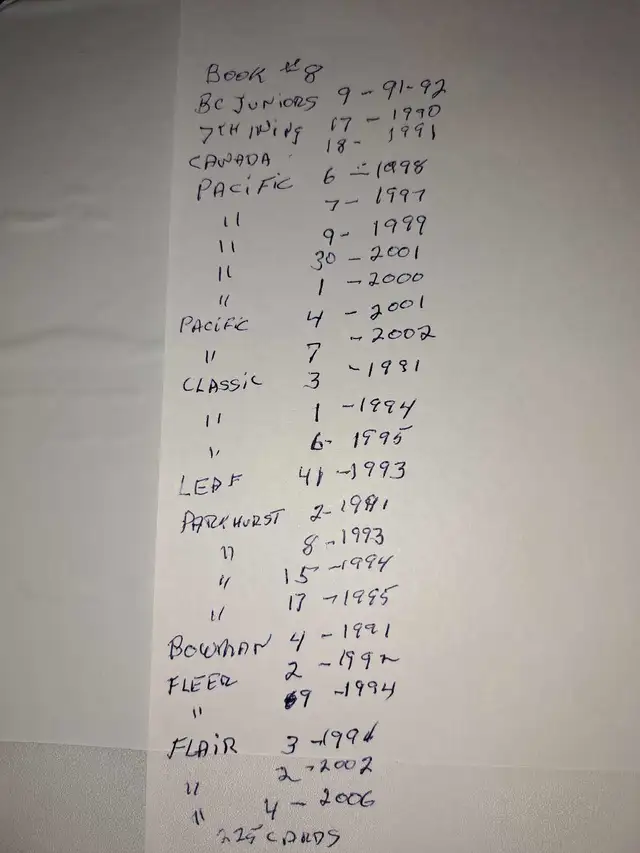 BOOK #8
BC JUNIORS 9 - 91-92
7TH INING 17 - 1990
CANADA 18 - 1991
PACIFIC 6 - 1998
" 7 - 1997
" 9 - 1999
" 30 - 2001
" 1 - 2000
PACIFIC 4 - 2001
" 7 - 2002
CLASSIC 3 - 1991
" 1 - 1994
" 6 - 1995
LEAF 41 - 1993
PARKHURST 2 - 1991
" 8 - 1993
" 15 - 1994
" 17 - 1995
BOWMAN 4 - 1991
FLEER 2 - 1992
" 9 - 1994
FLAIR 3 - 1994
" 2 - 2002
" 4 - 2006
225 CARDS